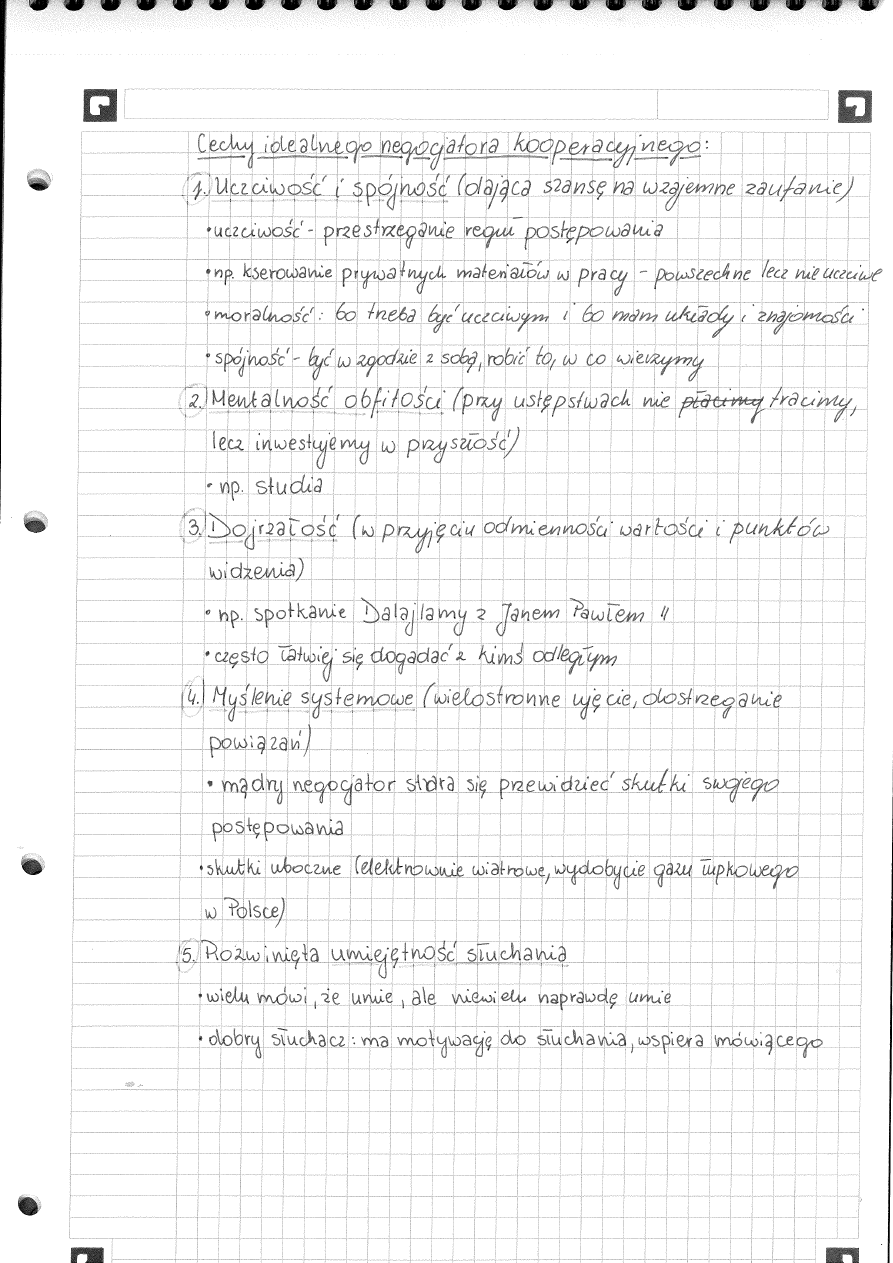 Cechy idealnego negocjatora kooperacyjnego:
1. Uczciwość i spójność (dająca szansę na wzajemne zaufanie)
• uczciwość - przestrzeganie reguł postępowania
• np. kserowanie prywatnych materiałów w pracy - powszechne lecz nieuczciwe
• moralność: bo trzeba być uczciwym i bo mam układy i znajomości
• spójność - być w zgodzie z sobą, robić to, w co wierzymy
2. Mentalność obfitości (przy ustępstwach nie płacimy tracimy,
lecz inwestujemy w przyszłość)
• np. studia
3. Dojrzałość (w przyjęciu odmienności wartości i punktów
widzenia)
• np. spotkanie Dalajlamy z Janem Pawłem II
• często łatwiej się dogadać z kimś odległym
4. Myślenie systemowe (wielostronne ujęcie, dostrzeganie
powiązań)
• mądry negocjator stara się przewidzieć skutki swojego
postępowania
• skutki uboczne (elektrownie wiatrowe, wydobycie gazu łupkowego
w Polsce)
5. Rozwinięta umiejętność słuchania
• wielu mówi, że umie, ale niewielu naprawdę umie
• dobry słuchacz: ma motywację do słuchania, wspiera mówiącego